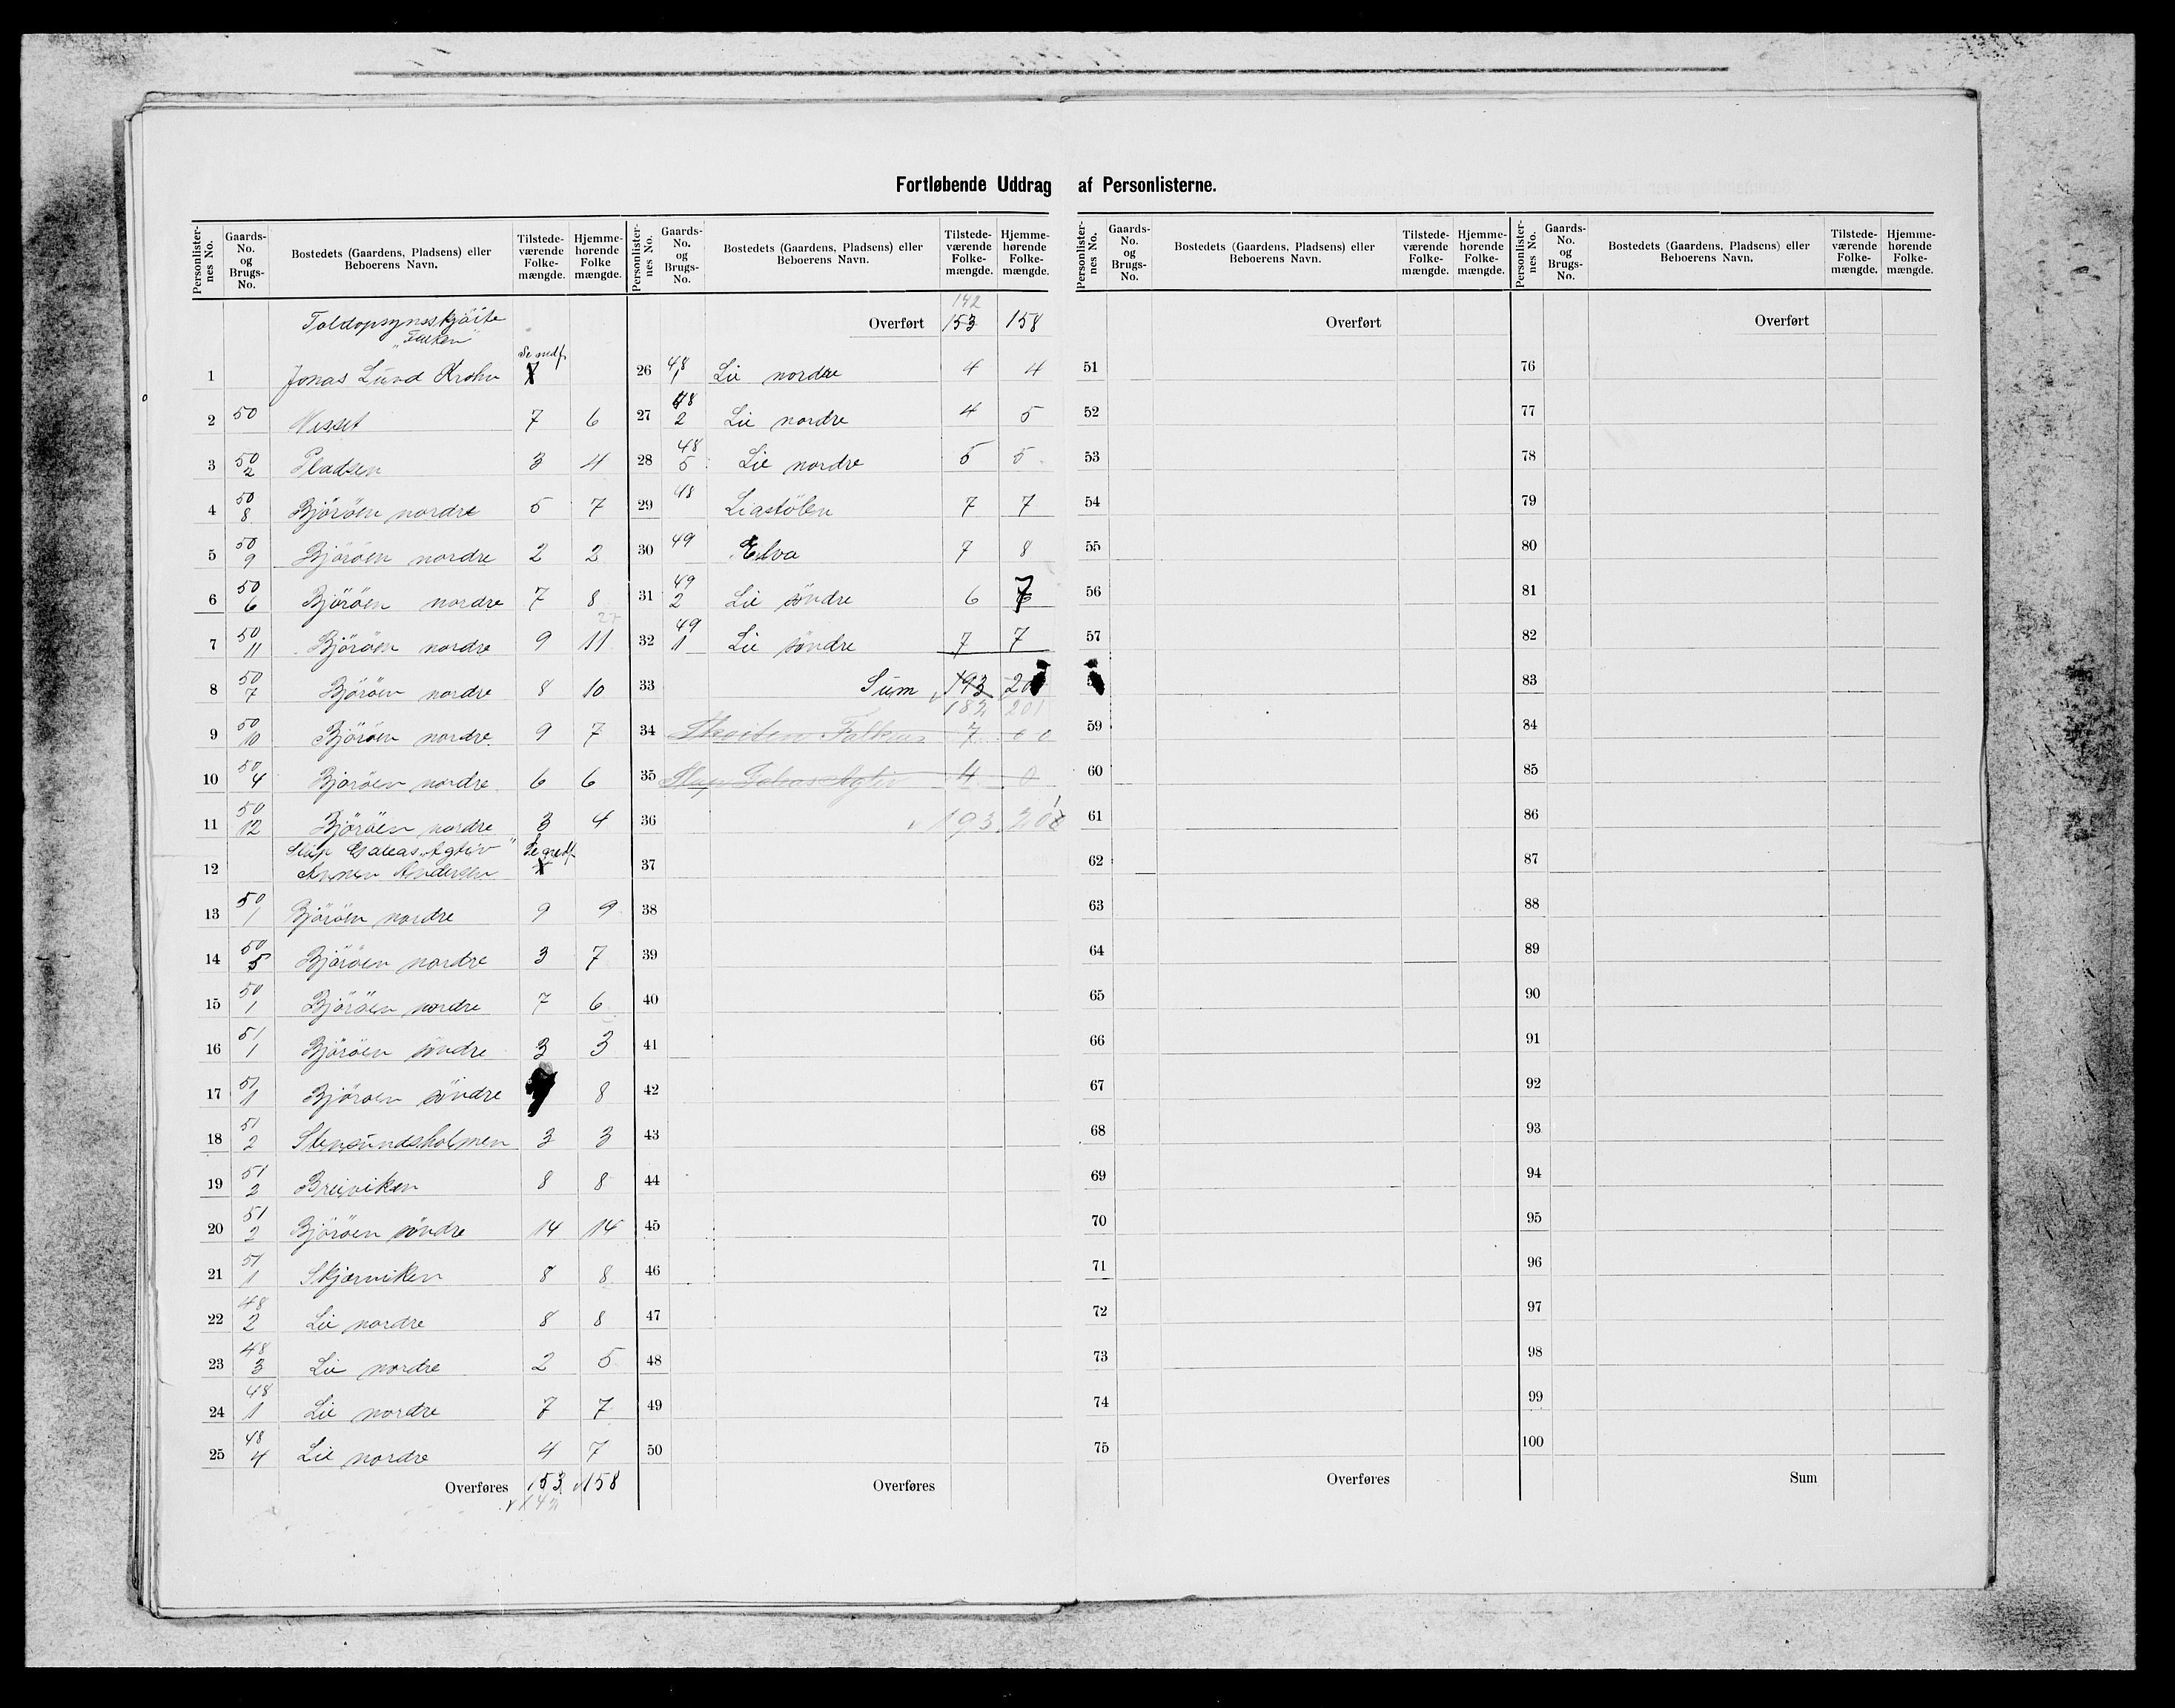 Fortløbende Uddrag af Personlisterne.
Personlister-nes No. Gaards-No. og Brugs-No. Bostedets (Gaardens, Pladsens) eller Beboerens Navn. Tilstede-værende Folke-mængde. Hjemme-hørende Folke mængde.
Toldopsynsskjöite
1 Jonas Lund Krohn 7
2 50 7 6
3 50 2 Pladsen 3 4
4 50 8 Björöen nordre 5 7
5 50 9 Björöen nordre 2 2
6 50 6 Björöen nordre 7 8
27
7 50 11 Björöen nordre 9 11
8 50 7 Björöen nordre 8 10
9 50 10 Björöen nordre 9 7
10 50 4 Björöen nordre 6 6
11 50 12 Björöen nordre 3 4
Slup Galeas „Agtiv"
12 Andersen
13 50 1 Björöen nordre 9 9
14 50 5 Björöen nordre 3 7
15 50 1 Björöen nordre 7 6
16 51 1 Björöen söndre 3 3
17 51 1 Björöen söndre 8
18 51 2 Stensundsholmen 3 3
19 51 2 Breiviken 8 8
20 51 2 Björöen söndre 14 14
21 51 1 Skjærviken 8 8
22 48 2 Lie nordre 8 8
23 48 3 Lie nordre 2 5
24 48 1 Lie nordre 7 7
25 48 4 Lie nordre 4 7
Overføres 153 158
142
Personlister-nes No. Gaards-No. og Brugs-No. Bostedets (Gaardens, Pladsens) eller Beboerens Navn. Tilstede-værende Folke-mængde. Hjemme-hørende Folke-mængde.
142
Overført 153 158
26 48 1 Lie nordre 4 4
27 48 2 Lie nordre 4 5
28 48 5 Lie nordre 5 5
29 48 Liastölen 7 7
30 49 Elva 7 8
31 49 2 Lie söndre 6 7
32 49 1 Lie söndre 7 7
33 Sum 193 20
182 201
34 Skoiten Falken 7 0
35 Slup Galeas Agtiv 4 0
36 193 201
37
38
39
40
41
42
43
44
45
46
47
48
49
50
Overføres
Personlister-nes No. Gaards-No. og Brugs-No. Bostedets (Gaardens, Pladsens) eller Beboerens Navn. Tilstede-værende Folke-mængde. Hjemme-hørende Folke-mængde.
Overført
51
52
53
54
55
56
57
59
60
61
62
63
64
65
66
67
68
69
70
71
72
73
74
75
Overføres
Personlister-nes No. Gaards-No. og Brugs-No. Bostedets (Gaardens, Pladsens) eller Beboerens Navn. Tilstede-værende Folke-mængde. Hjemme-hørende Folke-mængde.
Overført
76
77
78
79
80
81
82
83
84
85
86
87
88
89
90
91
92
93
94
95
96
97
98
99
100
Sum